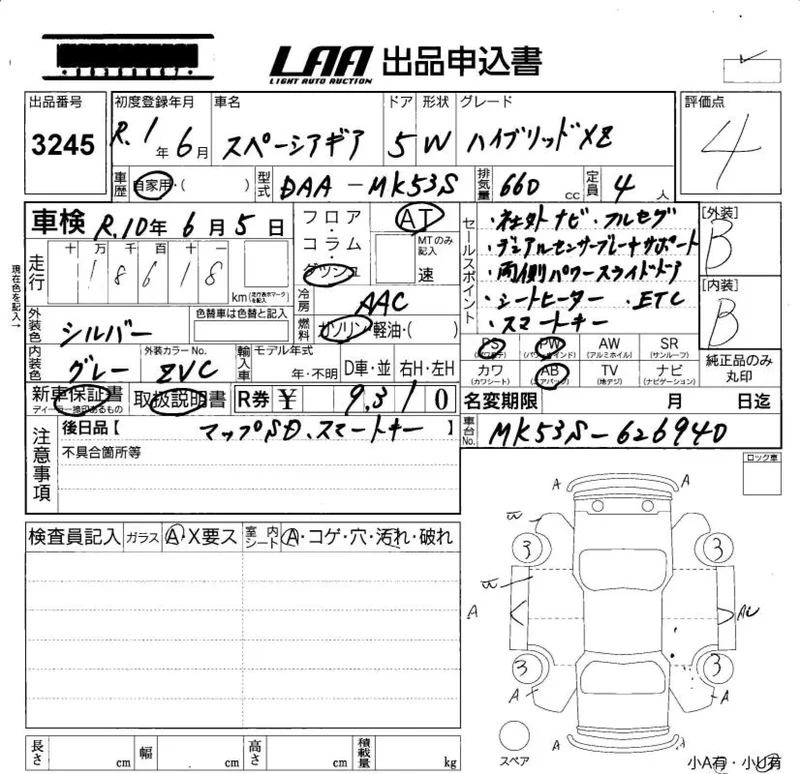 LAA 出品申込書
LIGHT AUTO AUCTION
出品番号 初度登録年月 車名 ドア 形状 グレード 評価点
3245 R.1年6月 スペーシアギア 5 W ハイブリッドXZ 4
車歴 自家用・( ) 型式 DAA-MK53S 排気量 660 cc 定員 4人
車検 R.10年6月5日
フロア・コラム・ダッシュ AT MTのみ記入 速
セールスポイント
・社外ナビ・フルセグ
・デュアルセンサーブレーキサポート
・両側パワースライドドア
・シートヒーター ・ETC
・スマートキー
[外装] B
[内装] B
現在色を記入→
走行 十 万 千 百 十 一
18618 km(走行表示マークを記入)
冷房 AAC
燃料 ガソリン・軽油・( )
外装色 シルバー 色替車は色替と記入
内装色 グレー 外装カラーNo. ZVC
輸入車 モデル年式 年・不明 D車・並 右H・左H
PS (パワステ) PW (パワーウインド) AW (アルミホイル) SR (サンルーフ)
カワ (カワシート) AB (エアバッグ) TV (地デジ) ナビ (ナビゲーション)
純正品のみ丸印
新車保証書 ディーラー捺印あるもの 取扱説明書 R券 ¥ 9,310
名変期限 月 日迄
注意事項 後日品【 マップSD、スマートキー 】
車台No. MK53S-626940
不具合箇所等
ロック車
検査員記入 ガラス A・X要ス 室内シート A・コゲ・穴・汚れ・破れ
A A
3 3
A
3 3
A A
A A
スペア
長さ cm 幅 cm 高さ cm 積載量 kg
小A有・小U有